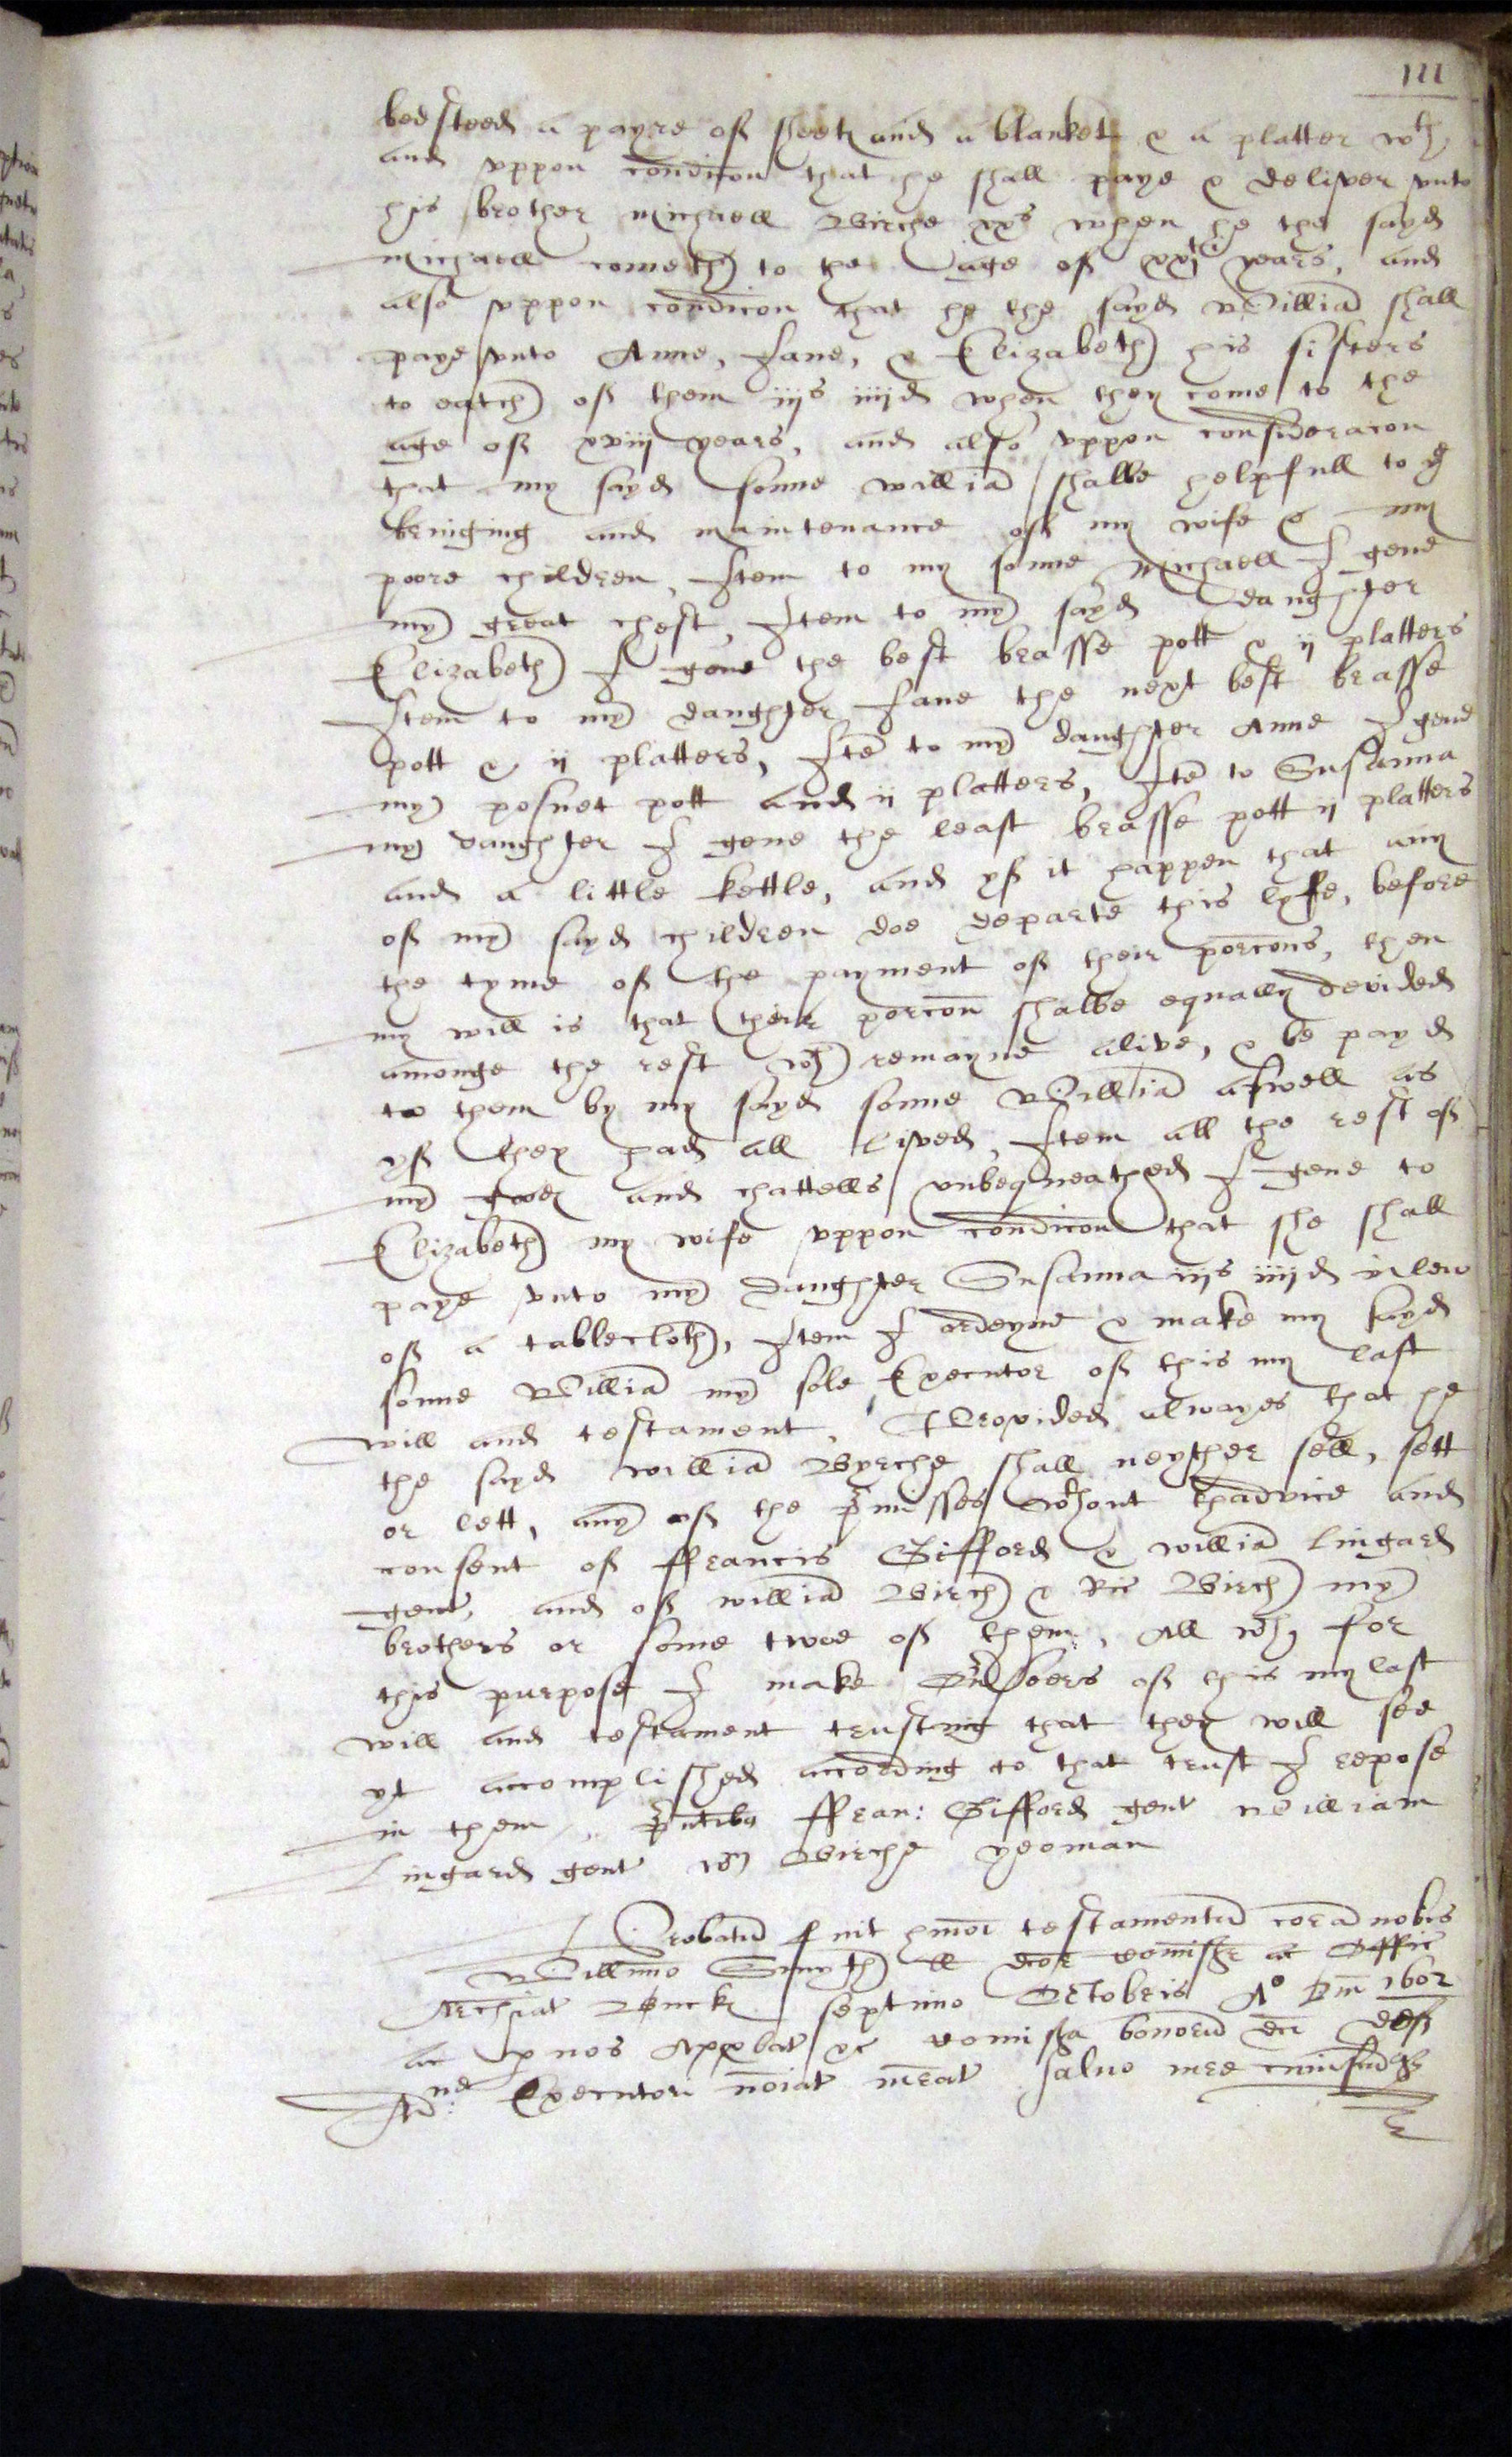 111
bedsteed a payre of sheets and a blanket & a platter wch
and uppon condicon that he shall paye & deliver unto
his brother Michaell Birche xxs when he the sayd
Michaell cometh to the age of xxjti years, and
also uppon condicon that he the sayd William shall
paye unto Anne, Jane, & Elizabeth his sisters
to eatch of them iijs iiijd when they come to the
age of xviij years, and also uppon consideracon
that my sayd sonne william shalbe helpfull to ye
bringing and maintenance of my wife & my
poore children, Item to my sonne Michaell I geve
my great chest, Item to my sayd daughter
Elizabeth I geve the best brasse pott & ij platters
Item to my daughter Jane the next best brasse
pott & ij platters, Ite to my daughter Anne I geve
my posnet pott and ij platters, Ite to Susanna
my daughter I geve the least brasse pott ij platters
and a little kettle, and yf it happen that any
of my sayd children doe departe this lyffe, before
the tyme of the payment of their porcons, then
my will is that their porcon shalbe equally devided
amonge the rest wch remayne alive, & be payd
to them by my sayd sonne William aswell as
yf they had all lived, Item all the rest of
my goods and chattells unbequeathed I geve to
Elizabeth my wife uppon condicon that she shall
paye unto my daughter Susanna iijs iiijd in lew
of a tablecloth, Item I ordeyne & make my sayd
sonne Willia my sole Executor of this my last
will and testament, Provided alwayes that he
the sayd willia Byrche shall neyther sell, sett
or lett, any of the pmisses wthout thadvice and
consent of ffrancis Gifford & willia Lingard
gent, and of willia Birch & Ric Birch my
brothers or some twoe of them, All wch for
this purpose I make Ovrseers of this my last
will and testament trusting that they will see
yt accomplished according to that trust I repose
in them, pntibus ffran: Gifford gent William
Lingard gent Wm Birche yeoman
Probatu fuit hmoi testamentu cora nobis
Willmo Smyth ll dcor comissr ac Offic
Archiat Bucks septimo Octobris Ao Dni 1602
ac p nos Approbat &c comissa bonoru dci def
Executori noiat iurat salvo iure cuiuscuque